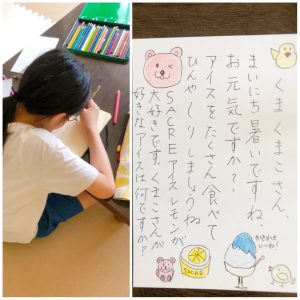 くまくまこさん、
まいにち暑いですね、
お元気ですか？
アイスをたくさん食べて
ひんやりしましょうね
SACREアイスレモンが
大好きです。くまこさんが
好きなアイスは何ですか？
かき氷も
いいね！
SACRE